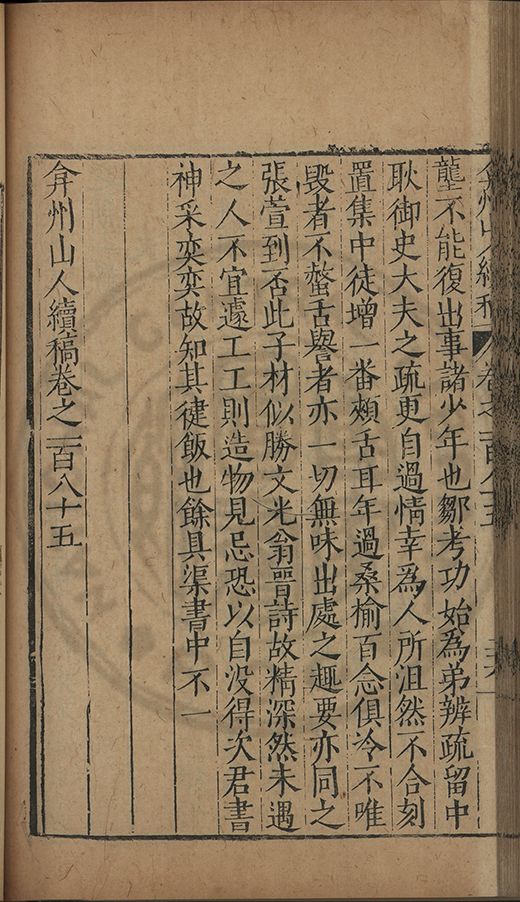 弇州山人續稿 卷之一百八十五
龍不能復出事諸少年也鄒考功始為弟辨疏留中
耿御史大夫之疏更自過情幸為人所沮然不合刻
置集中徒增一番頰舌耳年過桑榆百念俱冷不唯
毀者不螫舌譽者亦一切無味出處之趣要亦同之
張萱到否此子材似勝文光翁晉詩故精深然未遇
之人不宜遽工工則造物見忌恐以自没得次君書
神采奕奕故知其健飯也餘具渠書中不一
弇州山人續稿卷之一百八十五